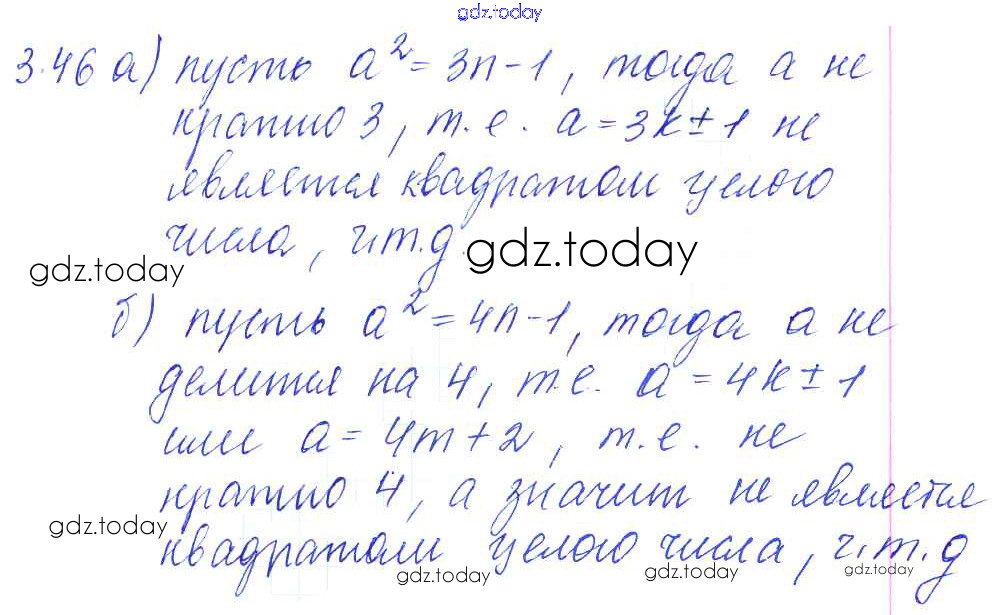 gdz.today
3.46 а) пусть a² = 3n - 1, тогда а не
кратно 3, т.е. a = 3k ± 1 не
является квадратом целого
числа, ч.т.д.
gdz.today gdz.today
б) пусть a² = 4n - 1, тогда а не
делится на 4, т.е. a = 4k ± 1
или a = 4m + 2, т.е. не
кратно 4, а значит не является
gdz.today
квадратом целого числа, ч.т.д
gdz.today gdz.today gdz.today